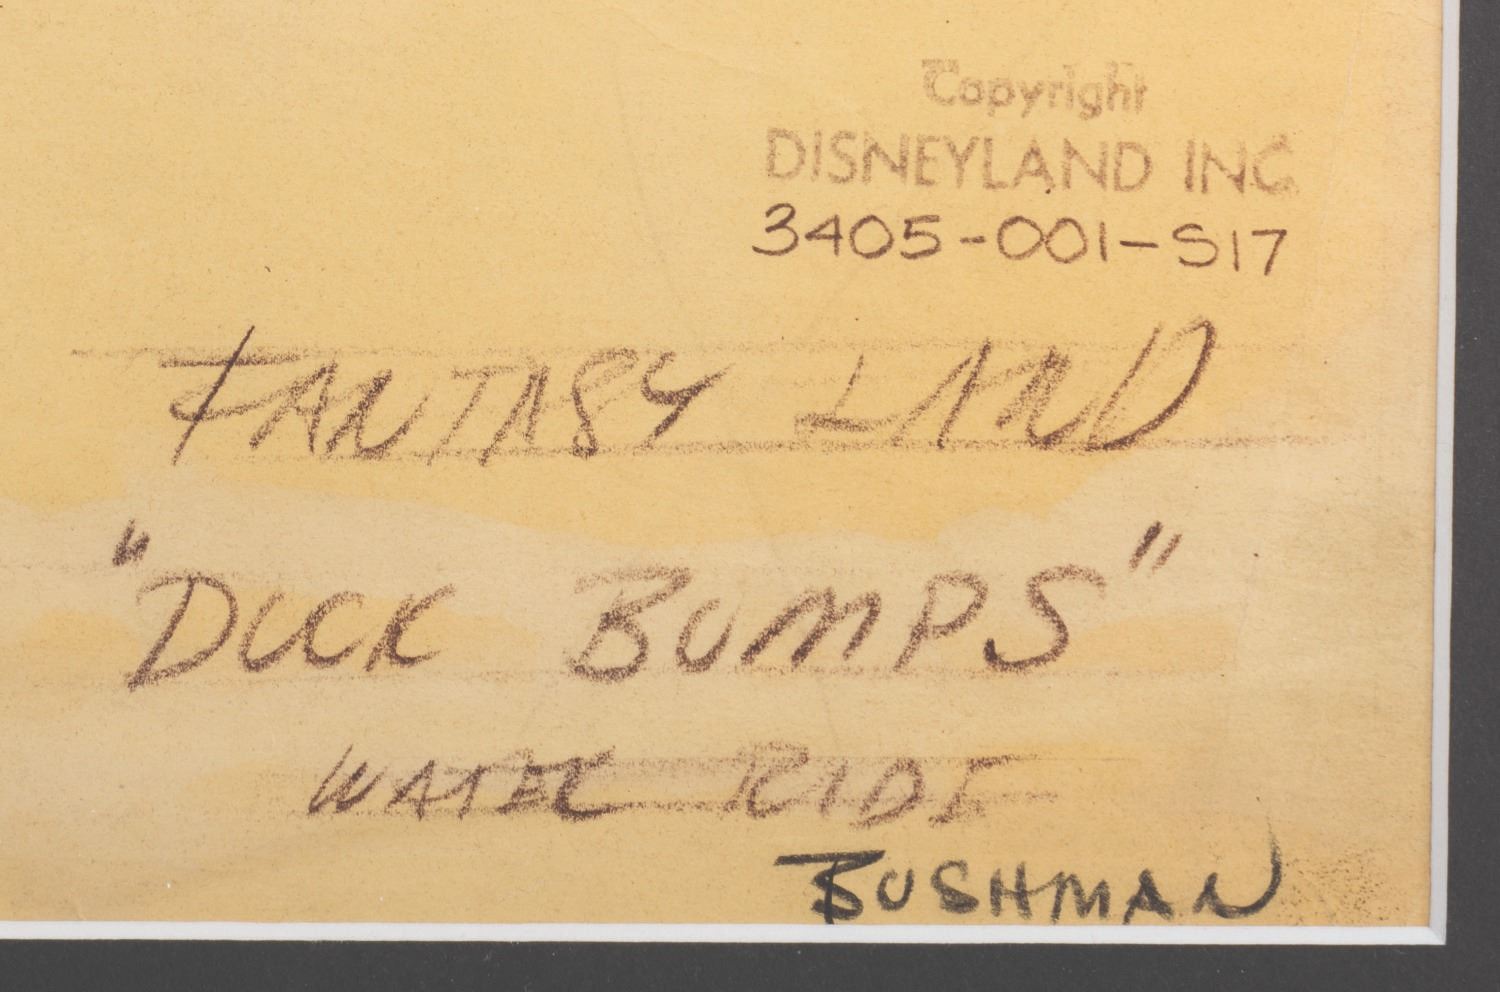 Copyright
DISNEYLAND INC
3405-001-S17
FANTASY LAND
"DUCK BUMPS"
WATER RIDE
BUSHMAN